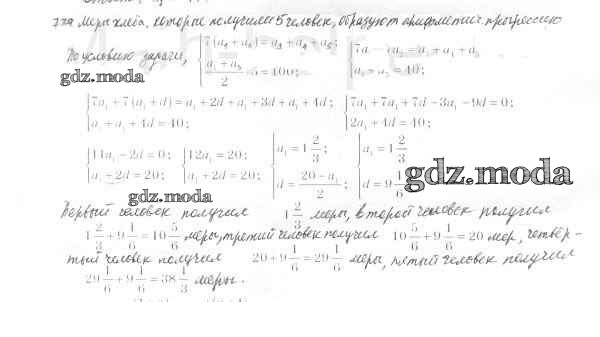 Меры хлеба, которые получили 5 человек, образуют арифметич. прогрессию
По условию задачи, {7(a₁+a₂)=a₃+a₄+a₅; (a₁+a₅)/2 · 5=100; {7a₁ 7a₂=a₃+a₄+a₅ a₁+a₅=40;
gdz.moda
{7a₁+7(a₁+d)=a₁+2d+a₁+3d+a₁+4d; a₁+a₁+4d=40; {7a₁+7a₁+7d-3a₁-9d=0; 2a₁+4d=40;
{11a₁-2d=0; a₁+2d=20; {12a₁=20; a₁+2d=20; {a₁=1 2/3; d=(20-a₁)/2; {a₁=1 2/3 d=9 1/6
gdz.moda
gdz.moda
Первый человек получил 1 2/3 меры, второй человек получил
1 2/3+9 1/6=10 5/6 меры, третий человек получил 10 5/6+9 1/6=20 мер, четвёр-
тый человек получил 20+9 1/6=29 1/6 меры, пятый человек получил
29 1/6+9 1/6=38 1/3 меры.